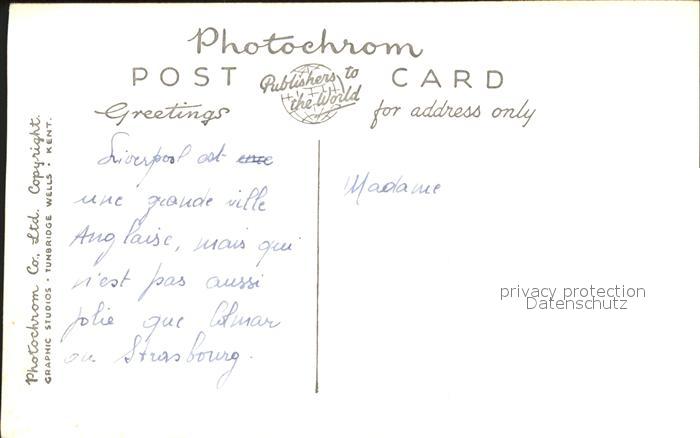 Photochrom
POST CARD
Publishers to
the World
Greetings
for address only
Liverpool est
une grande ville
Anglaise, mais qui
n'est pas aussi
jolie que Colmar
ou Strasbourg.
Madame
privacy protection
Datenschutz
Photochrom Co., Ltd. Copyright.
GRAPHIC STUDIOS • TUNBRIDGE WELLS • KENT.